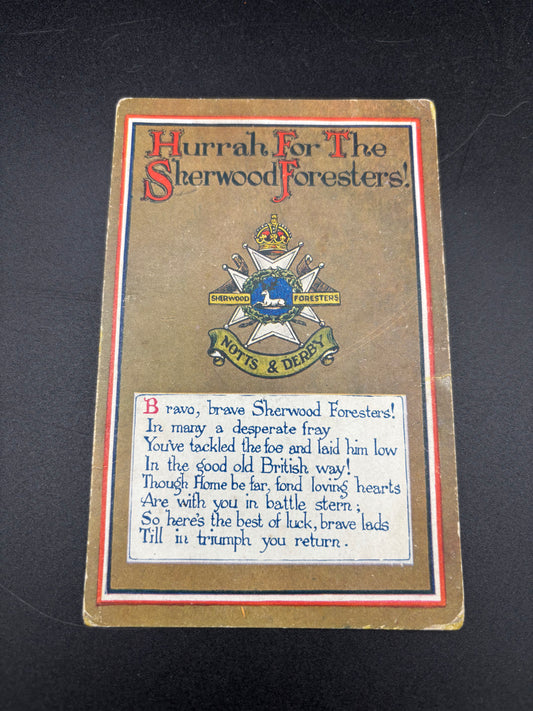 Hurrah For The
Sherwood Foresters!
SHERWOOD FORESTERS
NOTTS & DERBY
Bravo, brave Sherwood Foresters!
In many a desperate fray
You've tackled the foe and laid him low
In the good old British way!
Though Home be far, fond loving hearts
Are with you in battle stern;
So here's the best of luck, brave lads
Till in triumph you return.